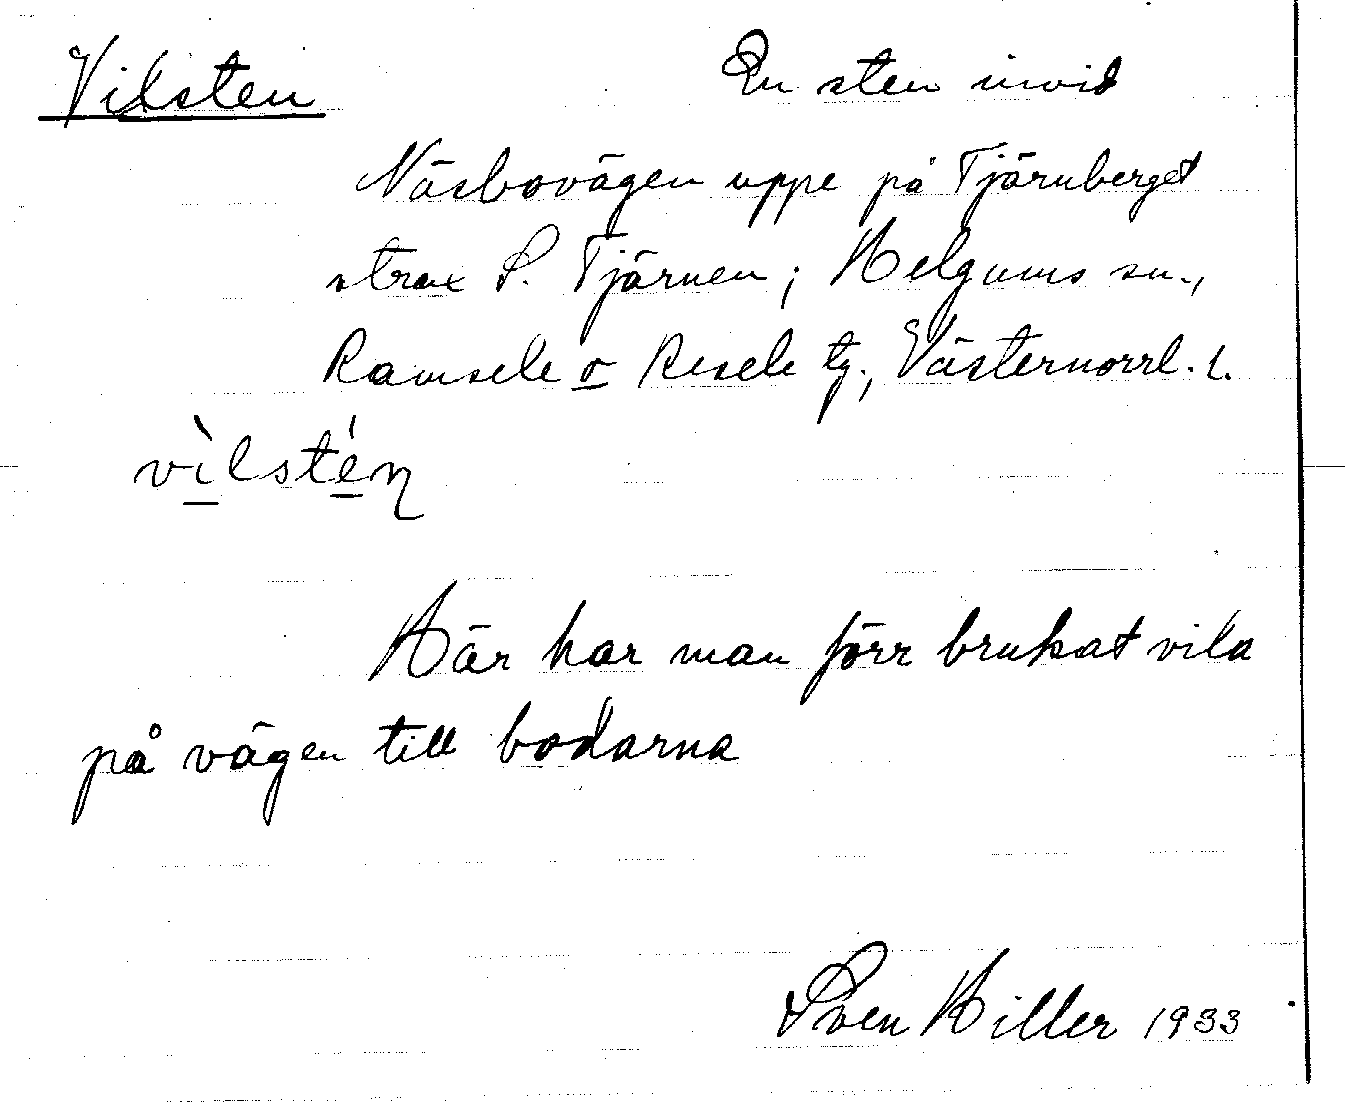 Vilsten
En sten invid
Näsbovägen uppe på Tjärnberget
strax S. Tjärnen; Helgums sn.,
Ramsele o Resele tg., Västernorrl. l.
vìlstén
Här har man förr brukat vila
på vägen till bodarna
Sven Hiller 1933